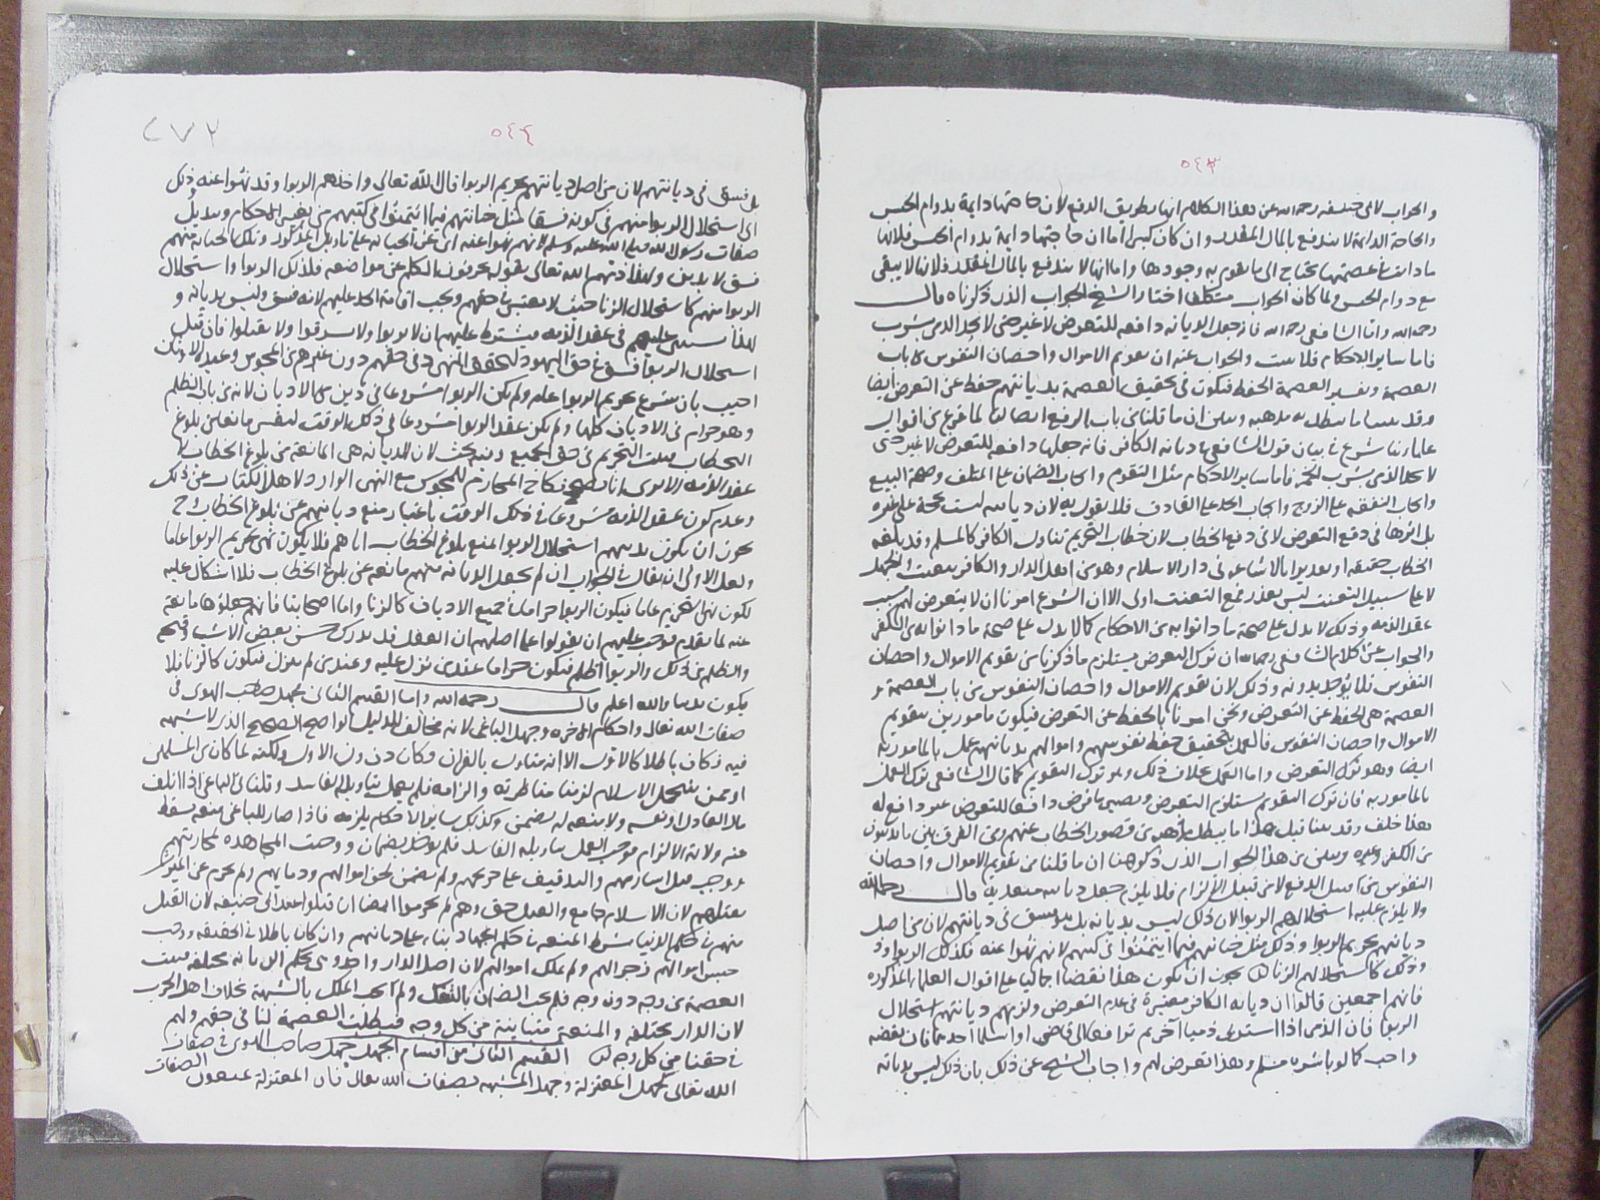 ٥٤٣
والجواب لابي حنيفه رحمه الله عن هذا الكلام انها بطريق الدفع لان حاجتها دايمة بدوام الحبس
والحاجة الدايمة لا يندفع بالمال المقدر وان كان كثيرا اما ان حاجتها دايمة بدوام الحبس فلانها
ما دامت محتاج الى ما يقوم به وجودها واما انها لا يندفع بالمال المقدر فلانه لا يبقى
مع دوام الحبس ولما كان الجواب متكلفا اختار الشيخ الجواب الذي ذكرناه قال
رحمه الله واما الشافعي رحمه الله فانه جعل الديانة دافعه للتعرض لا غير حتى لا يحد الذمي بشرب
فاما ساير الاحكام فلا يثبت والجواب عنه ان تقويم الاموال واحصان النفوس من باب
العصمة وتفسير العصمة الحفظ فيكون في تحقيق العصمة بديانتهم حفظ عن التعرض ايضا
وقد بينا ما يبطل به مذهبه ويبين ان ما قلنا من باب الدفع ايضا لما فرغ من اقوال
علماينا شرع في بيان قول الشافعي ديانة الكافر فانه جعلها دافعه للتعرض لا غير حتى
لا يحد الذمي بشرب الخمر فاما ساير الاحكام مثل التقوم وايجاب الضمان على المتلف وصحة البيع
وايجاب النفقة على الزوج وايجاب الحد على القاذف فلا يقول به لان ديانته ليست بحجة على غيره
بل اثرها في دفع التعرض لا في دفع الخطاب لان خطاب التحريم تناول الكافر كالمسلم وقد بلغه
الخطاب حقيقه او تقديرا بالاشاعه في دار الاسلام وهو من اهل الدار والكافر تعنت والجهل
لا على سبيل التعنت ليس بعذر فمع التعنت اولى الا ان الشرع امرنا ان لا نتعرض لهم بسبب
عقد الذمه وذلك لا يدل على صحة ما دانوا به من الاحكام كما لا يدل على صحة ما دانوا به من الكفر
والجواب عن كلام الشافعي رحمه الله ان ترك التعرض يستلزم ما ذكرنا من تقويم الاموال واحصان
النفوس فلا يوجد بدونه وذلك لان تقويم الاموال واحصان النفوس من باب العصمة و
العصمة هي الحفظ عن التعرض ونحن امرنا بالحفظ عن التعرض فيكون مامورين بتقويم
الاموال واحصان النفوس فالعمل بتحقيق حفظ نفوسهم واموالهم بديانتهم عمل بالمامور به
ايضا وهو ترك التعرض واما العمل بخلاف ذلك وهو ترك التقويم كما قال الشافعي ترك العمل
بالمامور به فان ترك التقويم يستلزم التعرض دافعا للتعرض غير دافع له
هذا خلف وقد بينا قبل هذا ما يبطل مذهبه من قصور الخطاب عنهم ومن الفرق بين ما يدينون
من الكفر وغيره ويبين من هذا الجواب الذي ذكرهنا ان ما قلنا من تقويم الاموال واحصان
النفوس من قبيل الدفع لا من قبيل الالزام فلا يلزم جعل ديانته متعدية قال رحمه الله
ولا يلزم عليه استحلالهم الربوا لان ذلك ليس بديانه بل هو فسق في ديانتهم لان من اصل
ديانتهم تحريم الربوا وذلك مثل خيانتهم فيما ايتمنوا في كتبهم لانهم نهوا عنه فكذلك الربوا
وذلك كاستحلالهم الزنا يجوز ان يكون هذا نقضا اجماليا على اقوال العلماء المذكوره
فانهم اجمعين قالوا ان ديانه الكافر معتبرة في عدم التعرض ولزمهم ديانتهم استحلال
الربوا فان الذمي اذا استربى ذميا اخر ثم ترافعا الى قاضي او اسلما احدهما فان نقضه
واجب كما لو باشره مسلم وهذا تعرض لهم واجاب الشيخ عن ذلك بان ذلك ليس بديانه
٥٤٤
٢٧٢
بل فسق في ديانتهم لان من اصل ديانتهم تحريم الربوا قال الله تعالى واخذهم الربوا وقد نهوا عنه وذلك
اي استحلال الربوا منهم في كونه فسقا لمثل خيانتهم فيما ايتمنوا في كتبهم من تغيير الاحكام وتبديل
صفات رسول الله صلى الله عليه وسلم لانهم نهوا عنه اي عن الخيانه على تاويل المذكور وتلك الخيانة منهم
فسق لا بدين ولهذا ذمهم الله تعالى بقوله يحرفون الكلم عن مواضعه فكذلك الربوا واستحلال
الربوا منهم كاستحلال الزنا حيث لا يعتبر في حقهم ويجب اقامة الحد عليهم لانه فسق وليس بديانه و
لهذا يستثنى عليهم في عقد الذمه فيشترط عليهم ان لا يربوا ولا يسرقوا ولا يقتلوا فان قيل
استحلال الربوا فسق في حق اليهود لتحقق النهي في حقهم دون غيرهم من المجوس وعبدة الاوثان
اجيب بان شرع تحريم الربوا عام ولم يكن الربوا مشروعا في دين من الاديان لانه من باب الظلم
وهو حرام في الاديان كلها ولم يكن عقد الربوا مشروعا في ذلك الوقت ليفسر مانعا من بلوغ
الخطاب فيثبت التحريم في حق الجميع وفيه بحث لان الديانه هي المانعة من بلوغ الخطاب
عقد الذمه الا ترى انا نصحح نكاح المحارم للمجوس مع النهي الوارد لاهل الكتاب عن ذلك
وعدم كون عقد الذمه مشروعا في ذلك الوقت باعتبار منع ديانتهم عن بلوغ الخطاب وح
يجوز ان يكون استحلال الربوا لمنع بلوغ الخطاب اياهم فلا يكون نهي تحريم الربوا عاما
ولعل الاولى ان يقال في الجواب ان لم يجعل الديانه منهم مانعه عن بلوغ الخطاب فلا اشكال عليه
لكون نهي التحريم عاما فيكون الربوا حراما في جميع الاديان كالزنا واما اصحابنا فانهم جعلوها مانعة
عنه لما تقدم فوجب عليهم ان يقولوا على اصلهم ان العقل قد يدرك حسن بعض الاشياء وقبحه
والظلم من ذلك والربوا ظلم فيكون حراما عند من نزل عليه وعند من لم ينزل فيكون كالزنا فلا
يكون بدينا والله اعلم قال رحمه الله واما القسم الثاني فجهل صاحب الهوى في
صفات الله تعالى واحكام الاخره وجهل الباغي لانه مخالف للدليل الواضح الصحيح الذي لا شبهة
فيه فكان باطلا كالاول الا انه متاول بالقران وكان دون الاول ولكنه لما كان من المسلمين
او ممن ينتحل الاسلام لزمنا مناظرته والزامه فلم يعمل بتاويله الفاسد وقلنا في الباغي اذا اتلف
مال العادل او نفسه ولا منعة له يضمن وكذلك ساير الاحكام يلزمه فاذا صار للباغي منعه سقط
عنه ولاية الالزام فوجب العمل بتاويله الفاسد فلم يؤخذ بضمان ووجبت المجاهده لمحاربتهم
ووجب قتل اساريهم والتدفيف على جريحهم ولم نضمن نحن اموالهم ودماءهم ولم نحرم عن الميراث
بقتلهم لان الاسلام جامع والقتل حق وهم لم يحرموا ايضا ان قتلوا عند ابي حنيفه لان القتل
منهم في حكم الدنيا بشرط المنعه في حكم الجهاد بناء على ديانتهم وان كان باطلا في الحقيقه ووجب
حبس اموالهم زجرا لهم ولم نملك اموالهم لان اصل الدار واحد وهي بحكم الديانه مختلفه فثبتت
العصمة من وجه دون وجه فلم يجب الضمان بالشك ولم يجب الملك بالشبهة بخلاف اهل الحرب
لان الدار مختلفه والمنعة متباينة من كل وجه فبطلت العصمة لنا في حقهم ولهم
في حقنا من كل وجه القسم الثاني من اقسام الجهل جهل صاحب الهوى في صفات
الله تعالى كجهل المعتزلة وجهل المشبهه بصفات الله تعالى فان المعتزلة يمنعون الصفات